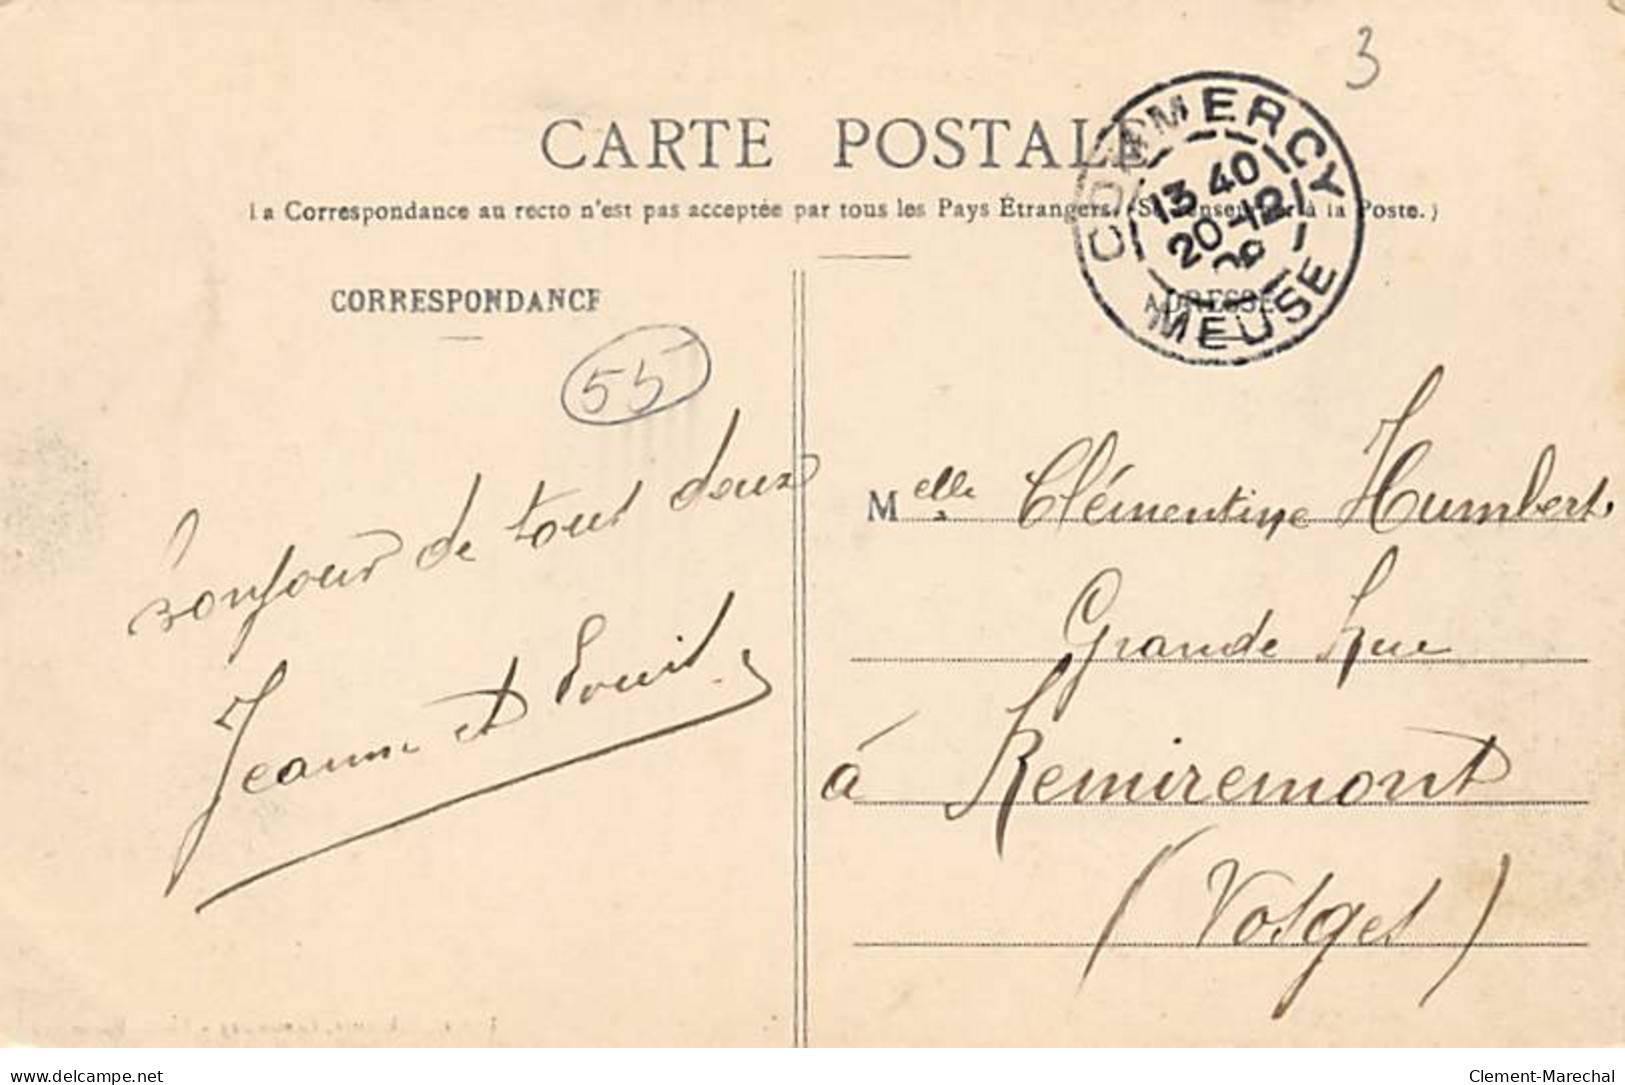 3
CARTE POSTALE
La Correspondance au recto n'est pas acceptée par tous les Pays Étrangers. (Se renseigner à la Poste.)
COMMERCY
13 40
20-12
09
MEUSE
CORRESPONDANCE
ADRESSE
55
bonjour de tout deux
Jeanne et Louis
Melle Clémentine Humbert
Grande Rue
à Remiremont
(Vosges)
delcampe.net
Clement-Marechal